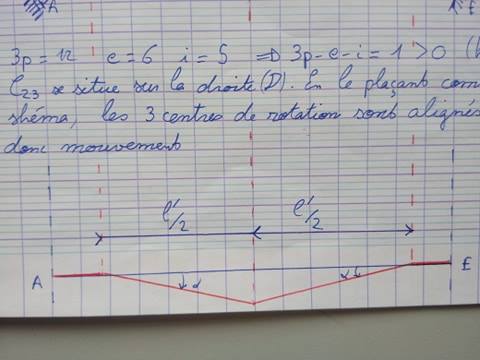 A E
3p = 12 e = 6 i = 5 ⇒ 3p - e - i = 1 > 0 (h
C23 se situe sur la droite (D). En le plaçant com
shéma, les 3 centres de rotation sont alignés
donc mouvement
l'/2 l'/2
A α α E